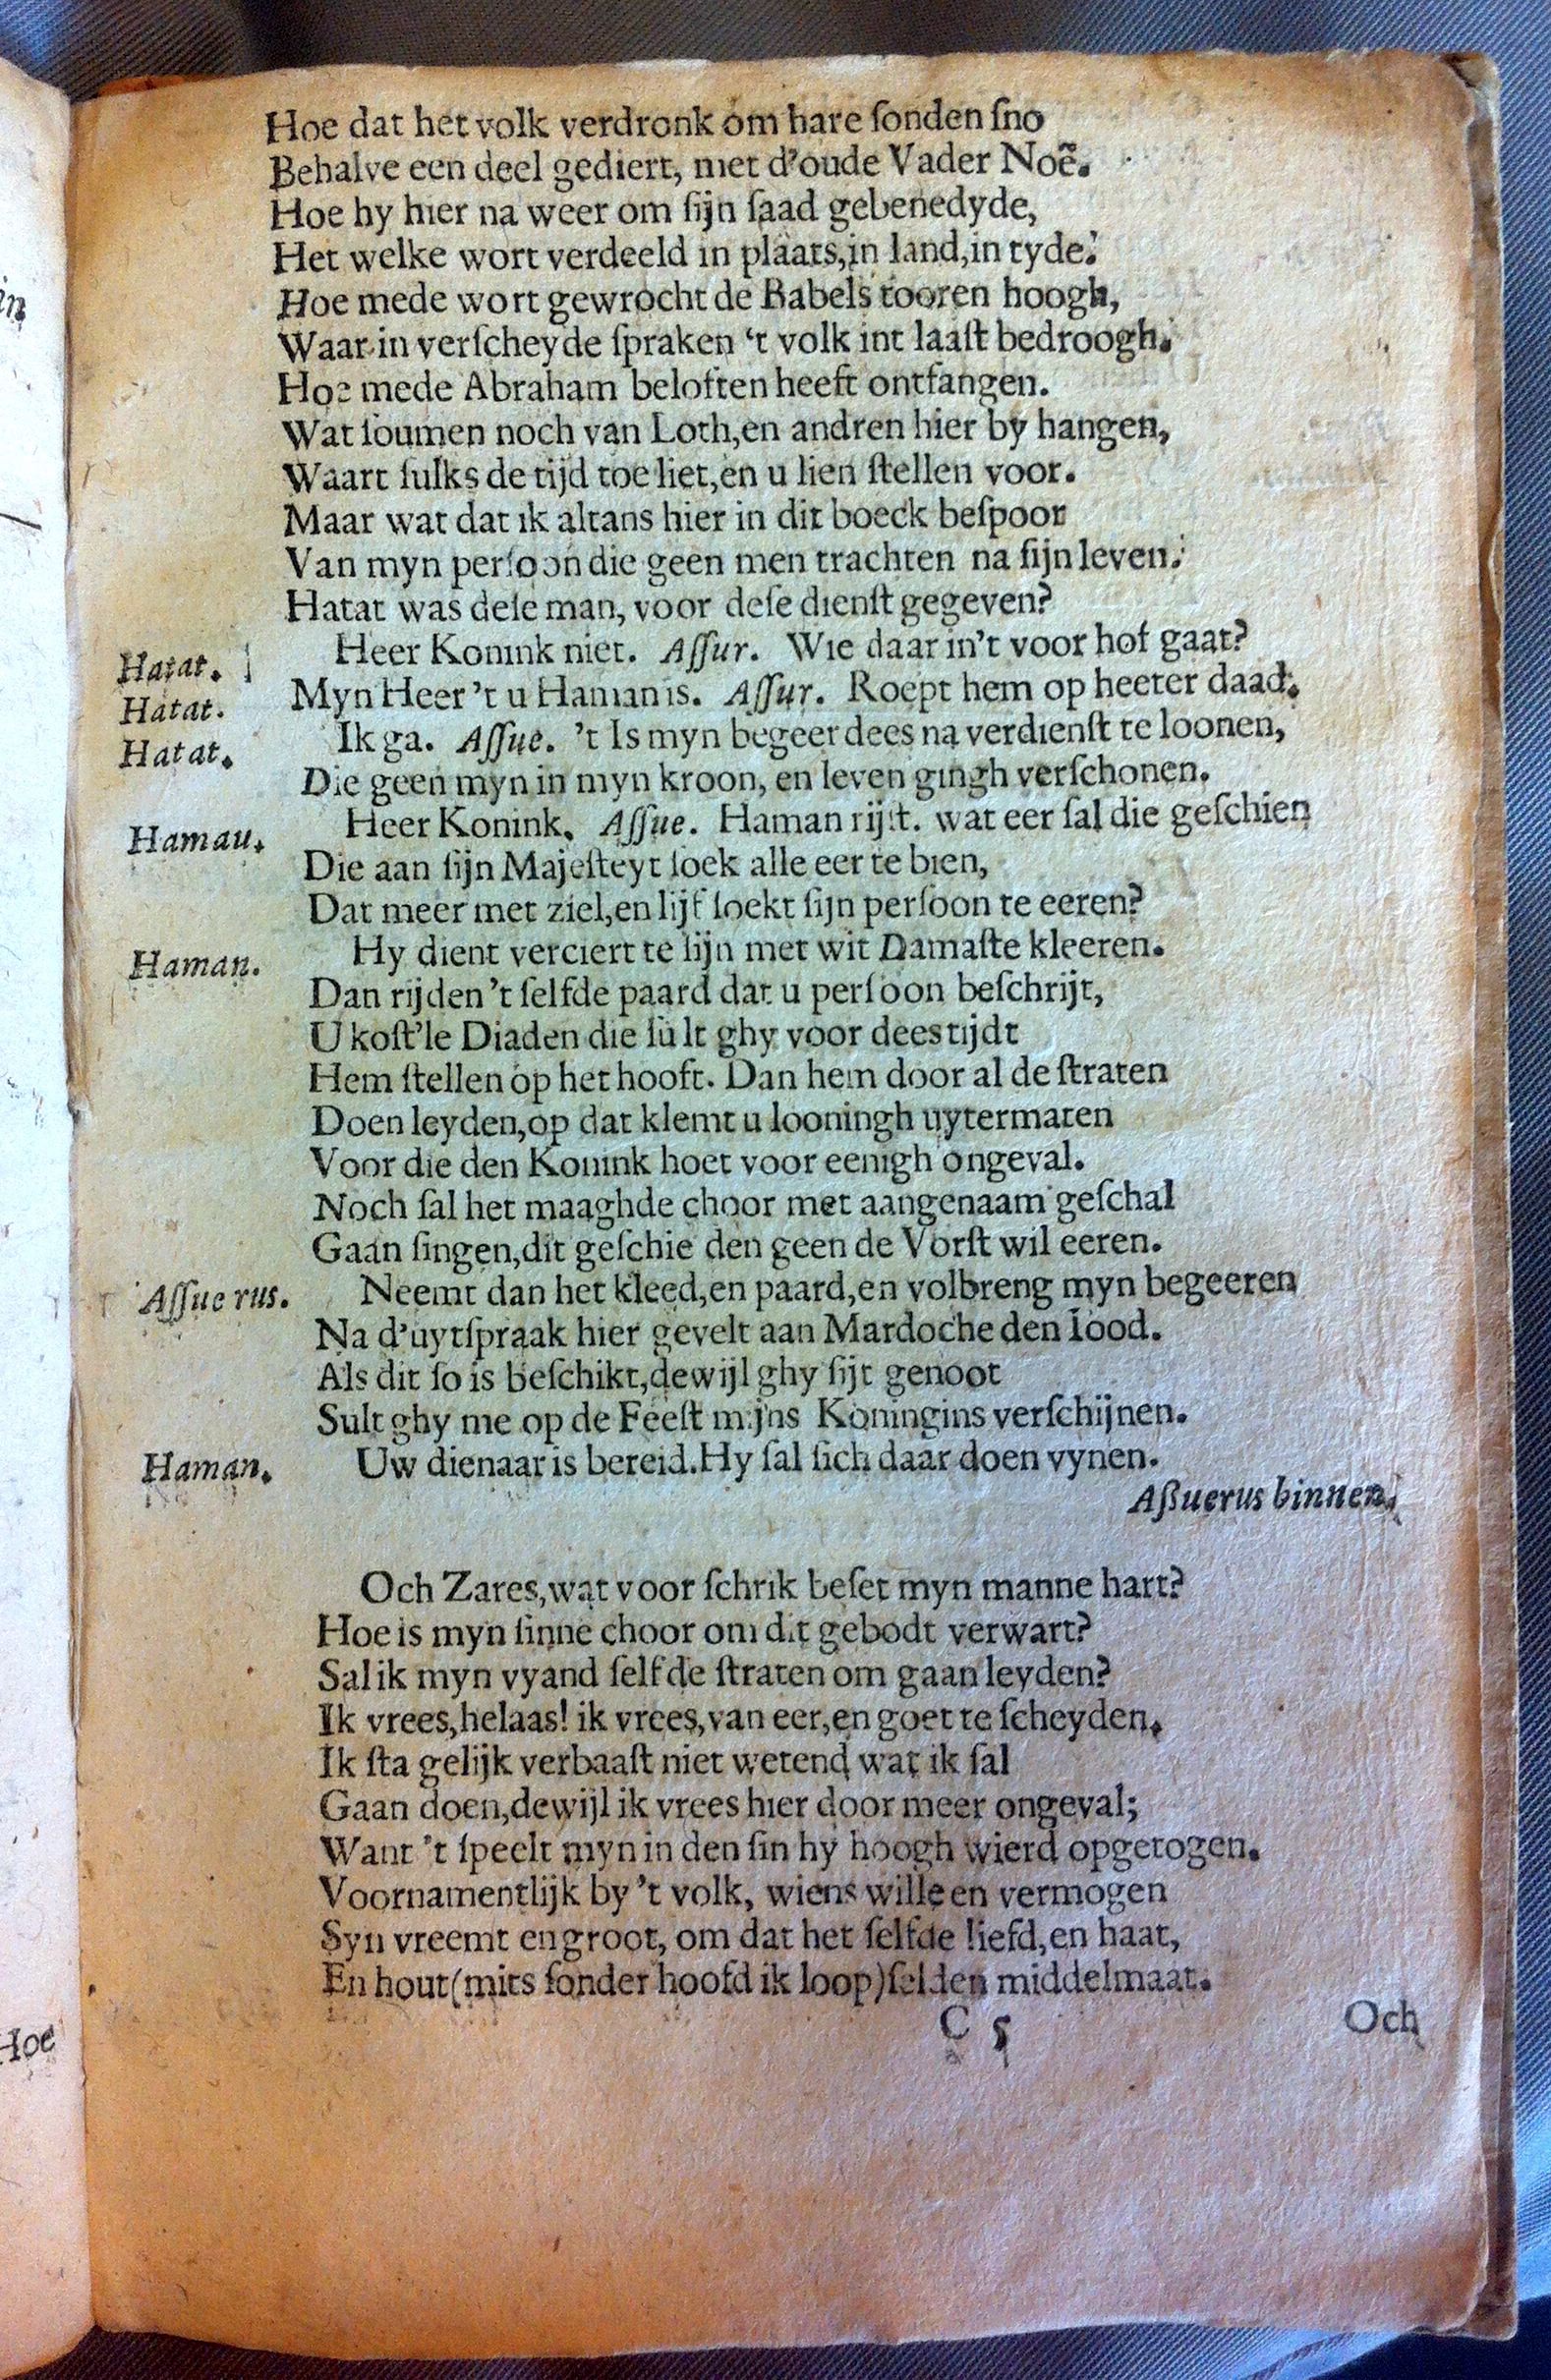 Hoe dat het volk verdronk om hare ſonden ſno
Behalve een deel gediert, met d'oude Vader Noẽ.
Hoe hy hier na weer om ſijn ſaad gebenedyde,
Het welke wort verdeeld in plaats,in land,in tyde.
Hoe mede wort gewrocht de Babels tooren hoogh,
Waar in verſcheyde ſpraken 't volk int laaſt bedroogh.
Hoe mede Abraham beloften heeft ontfangen.
Wat ſoumen noch van Loth,en andren hier by hangen,
Waart ſulks de tijd toe liet,en u lien ſtellen voor.
Maar wat dat ik altans hier in dit boeck beſpoor
Van myn perſoon die geen men trachten na ſijn leven.
Hatat was deſe man, voor deſe dienſt gegeven?
Hatat. Heer Konink niet. Aſſur. Wie daar in't voor hof gaat?
Hatat. Myn Heer 't u Haman is. Aſſur. Roept hem op heeter daad.
Hatat. Ik ga. Aſſue. 't Is myn begeer dees na verdienſt te loonen,
Die geen myn in myn kroon, en leven gingh verſchonen.
Hamau. Heer Konink. Aſſue. Haman rijſt. wat eer ſal die geſchien
Die aan ſijn Majeſteyt ſoek alle eer te bien,
Dat meer met ziel,en lijf ſoekt ſijn perſoon te eeren?
Haman. Hy dient verciert te ſijn met wit Damaſte kleeren.
Dan rijden 't ſelfde paard dat u perſoon beſchrijt,
U koſt'le Diaden die ſult ghy voor dees tijdt
Hem ſtellen op het hooft. Dan hem door al de ſtraten
Doen leyden,op dat klemt u looningh uytermaten
Voor die den Konink hoet voor eenigh ongeval.
Noch ſal het maaghde choor met aangenaam geſchal
Gaan ſingen,dit geſchie den geen de Vorſt wil eeren.
Aſſuerus. Neemt dan het kleed,en paard,en volbreng myn begeeren
Na d'uytſpraak hier gevelt aan Mardoche den Iood.
Als dit ſo is beſchikt,dewijl ghy ſijt genoot
Sult ghy me op de Feeſt mijns Koningins verſchijnen.
Haman. Uw dienaar is bereid.Hy ſal ſich daar doen vynen.
Aßuerus binnen.
Och Zares,wat voor ſchrik beſet myn manne hart?
Hoe is myn ſinne choor om dit gebodt verwart?
Sal ik myn vyand ſelf de ſtraten om gaan leyden?
Ik vrees,helaas! ik vrees,van eer,en goet te ſcheyden.
Ik ſta gelijk verbaaſt niet wetend wat ik ſal
Gaan doen,dewijl ik vrees hier door meer ongeval;
Want 't ſpeelt myn in den ſin hy hoogh wierd opgetogen.
Voornamentlijk by 't volk, wiens wille en vermogen
Syn vreemt en groot, om dat het ſelfde liefd,en haat,
En hout(mits ſonder hoofd ik loop)ſelden middelmaat.
C 5 Och
Hoe